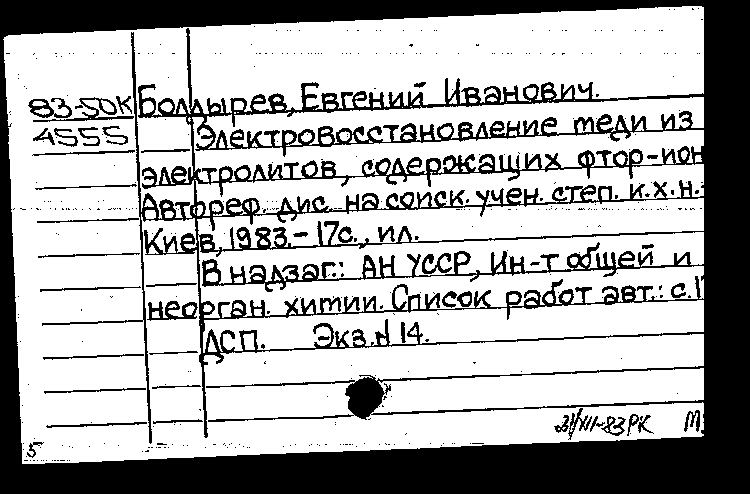 83-50К Болдырев, Евгений Иванович.
4555 Электровосстановление меди из
электролитов, содержащих фтор-ион
Автореф. дис. на соиск. учен. степ. к.х.н.-
Киев, 1983.-17с., ил.
В надзаг.: АН УССР, Ин-т общей и
неорган. химии. Список работ авт.: с.1
ДСП. Экз.N 14.
5